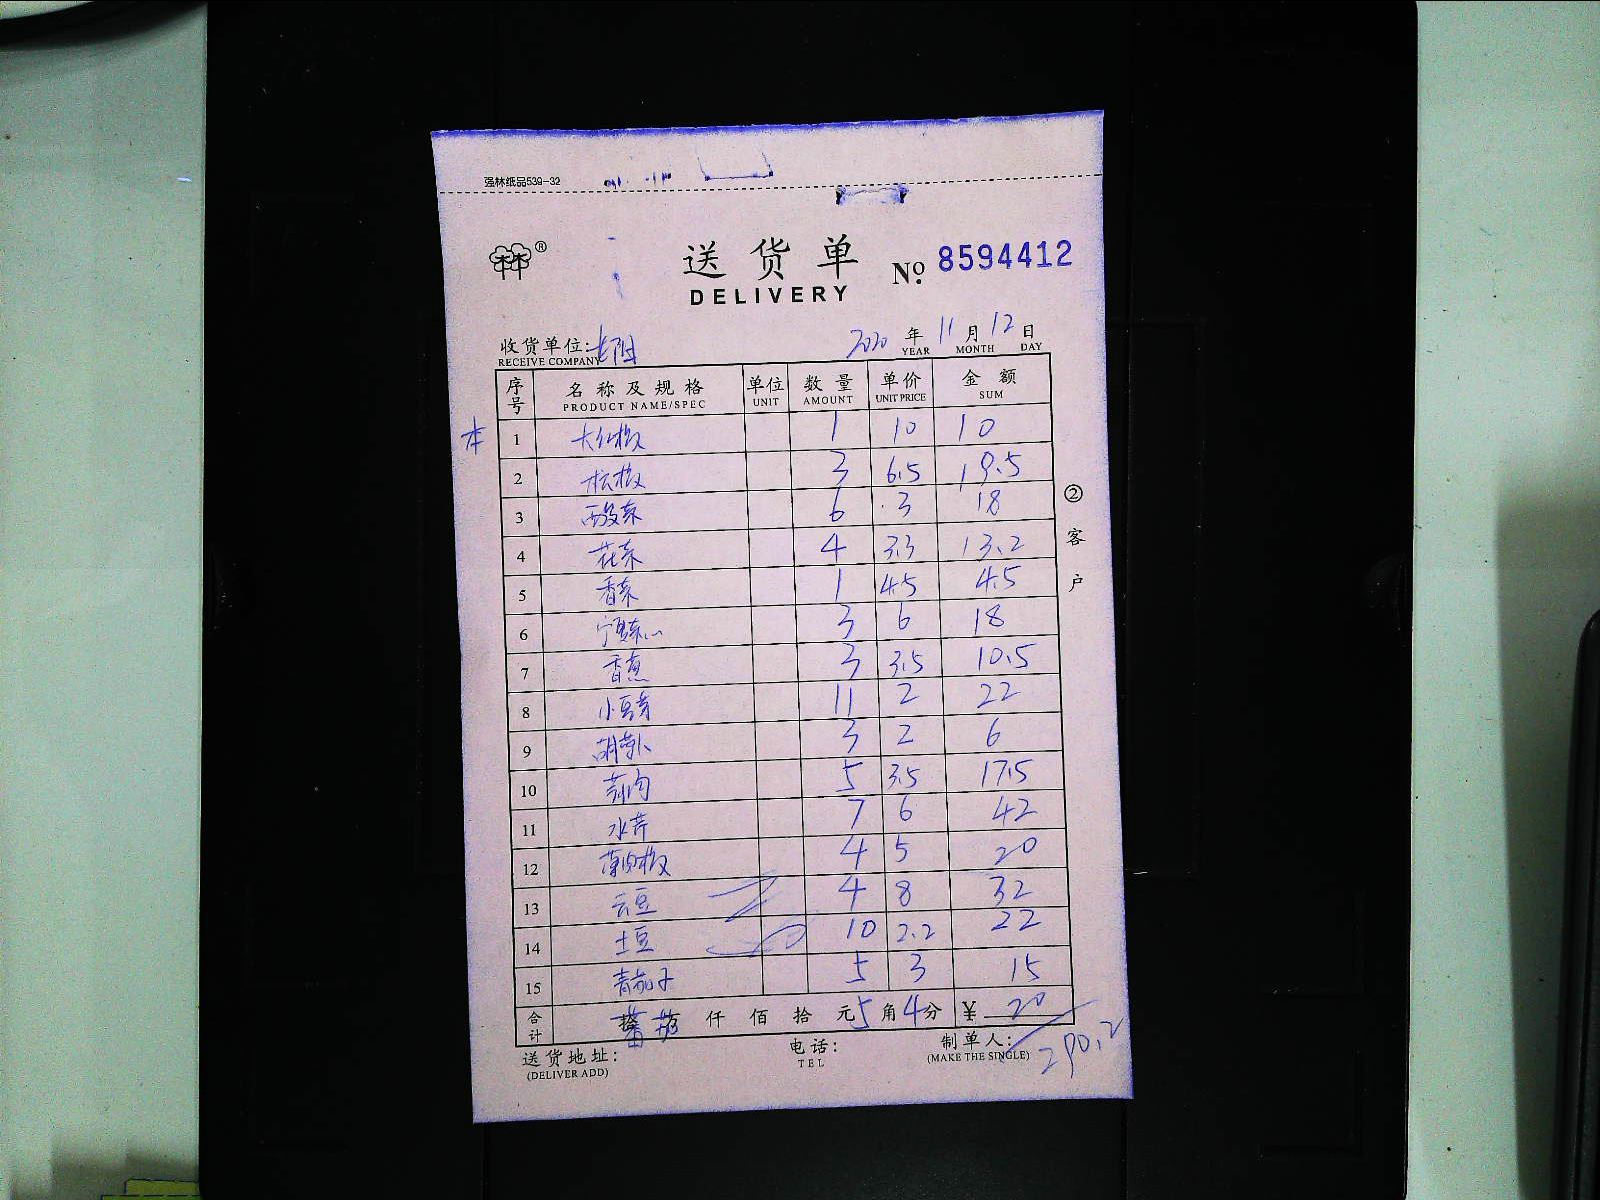 强林纸品539-32
林®
送货单 No. 8594412
DELIVERY
收货单位: 2020 年 11 月 12 日
RECEIVE COMPANY YEAR MONTH DAY
序号 名称及规格 单位 数量 单价 金额
PRODUCT NAME/SPEC UNIT AMOUNT UNIT PRICE SUM
1 大红椒 1 10 10
2 杭椒 3 6.5 19.5
3 西芹菜 6 3 18
4 花菜 4 3.3 13.2
5 香菜 1 4.5 4.5
6 3 6 18
7 香葱 3 3.5 10.5
8 小豆芽 11 2 22
9 胡萝卜 3 2 6
10 5 3.5 17.5
11 水芹 7 6 42
12 薄肉椒 4 5 20
13 云豆 4 8 32
14 土豆 10 2.2 22
15 青茄子 5 3 15
合计 拾 万 仟 佰 拾 元 5 角 4 分 ¥ 20
番茄
290.2
② 客户
送货地址: 电话: 制单人:
(DELIVER ADD) TEL (MAKE THE SINGLE)